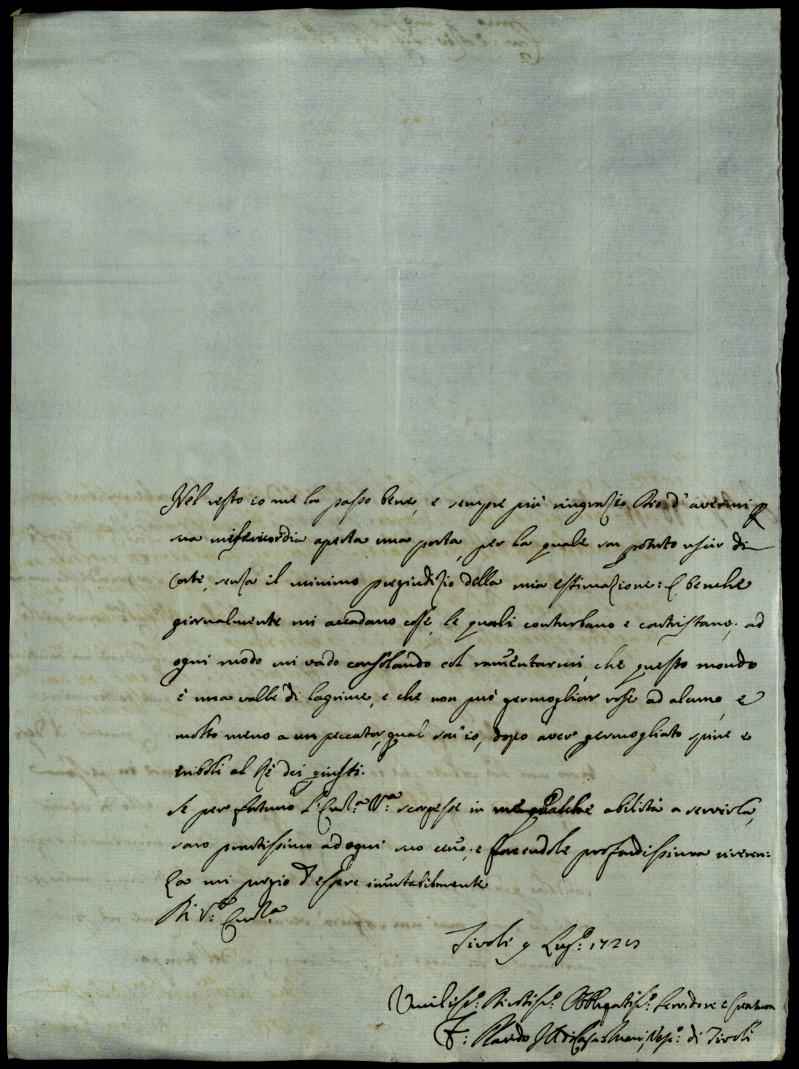 Nel resto io me la passo bene, e sempre più ringrazio Dio d'avermi p
sua misericordia aperta una porta, per la quale son potuto uscir di
Corte, senza il minimo pregiudizio della mia estimazione: E benche
giornalmente mi accadano cose, le quali conturbano e contristano, ad
ogni modo mi vado consolando col ramentarmi, che questo mondo
è una valle di lagrime, e che non può germogliar rose ad alcuno, e
molto meno a un peccator, qual son'io, dopo aver germogliato spine e
triboli al Rè dei giusti.
Se per fortuna l'Ecc.za V.ra scorgesse in me qualche abilità a servirla,
sarò prontissimo ad ogni suo cenno; e facendole profondissima riveren:
za mi pregio d'essere immutabilmente
Di V.ra Ecc.za
Tivoli 9 Lug.o
Umiliss.o Obbligatiss.o Servidore e
F: Placido Vesc.o di Tivoli